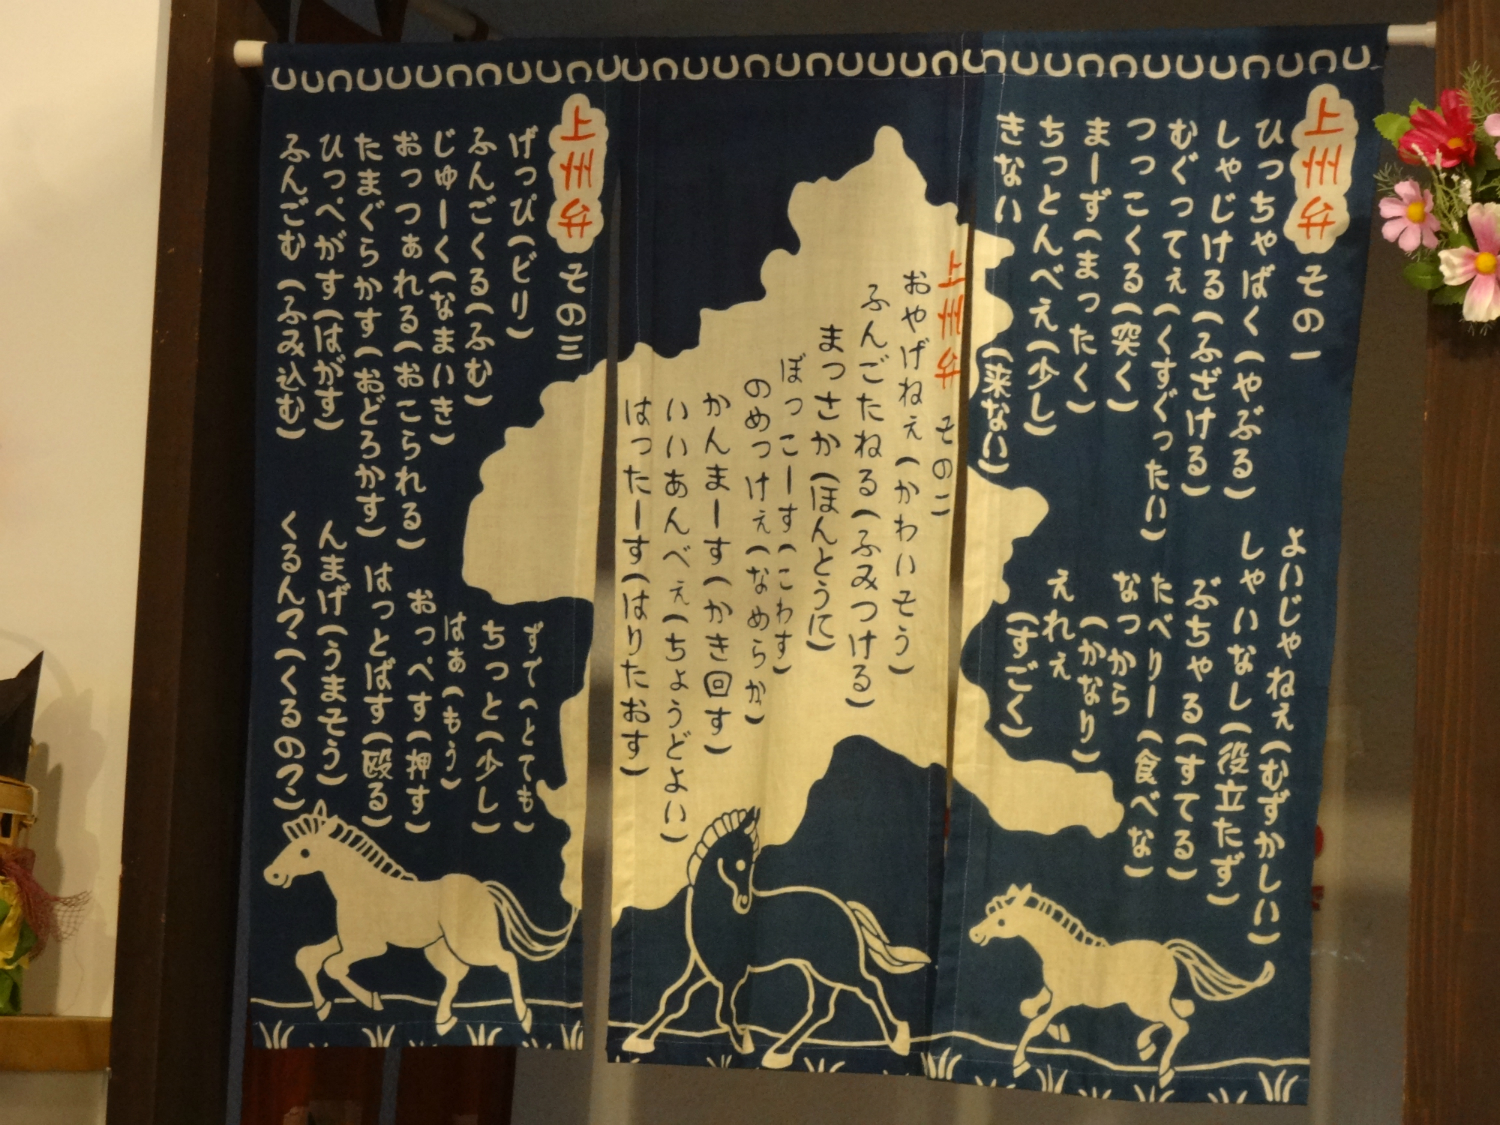 上州弁 その一
ひっちゃばく(やぶる)
しゃじける(ふざける)
むぐってぇ(くすぐったい)
つっこくる(突く)
まーず(まったく)
ちっとんべえ(少し)
きない(来ない)
よいじゃねぇ(むずかしい)
しゃいなし(役立たず)
ぶちゃる(すてる)
たべりー(食べな)
なっから(かなり)
えれぇ(すごく)
上州弁 その二
おやげねぇ(かわいそう)
ふんごたねる(ふみつける)
まっさか(ほんとうに)
ぼっこーす(こわす)
のめっけぇ(なめらか)
かんまーす(かき回す)
いいあんべぇ(ちょうどよい)
はったーす(はりたおす)
上州弁 その三
げっぴ(ビリ)
ふんごくる(ふむ)
じゅーく(なまいき)
おっつぁれる(おこられる)
たまぐらかす(おどろかす)
ひっぺがす(はがす)
ふんごむ(ふみ込む)
ずで(とても)
ちっと(少し)
はぁ(もう)
おっぺす(押す)
はっとばす(殴る)
んまげ(うまそう)
くるんマ(くるのマ)